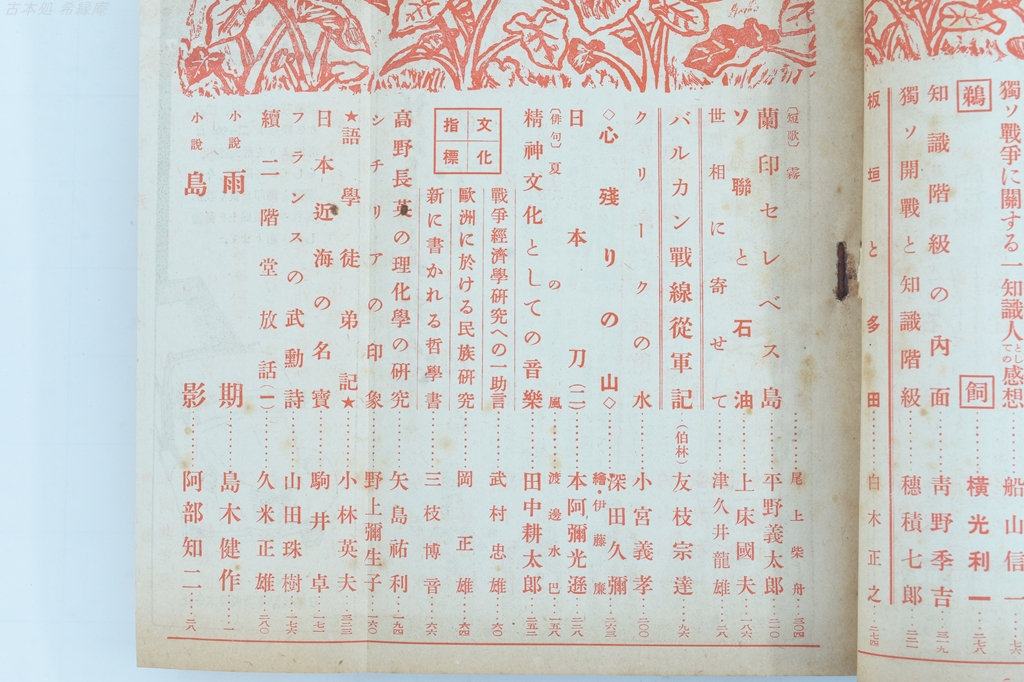 獨ソ戰爭に關する一知識人としての感想……船山信一
鵜飼……橫光利一
知識階級の內面……靑野季吉…三一九
獨ソ開戰と知識階級……穗積七郞
板垣と多田……白木正之…二七四
〔短歌〕霧……尾上柴舟…三〇四
蘭印セレベス島……平野義太郞…二一〇
ソ聯と石油……上床國夫…一八六
世相に寄せて……津久井龍雄
バルカン戰線從軍記(伯林)友枝宗達…九六
クリークの水……小宮義孝…二〇〇
◇心殘りの山◇……深田久彌
繪・伊藤廉
日本の刀(二)……本阿彌光遜
〔俳句〕夏の風……渡邊水巴…一五八
精神文化としての音樂……田中耕太郞…二五二
文化指標
戰爭經濟學硏究への一助言……武村忠雄…六〇
歐洲に於ける民族硏究……岡正雄…六四
新に書かれる哲學書……三枝博音…六六
高野長英の理化學の硏究……矢島祐利…一九四
シチリアの印象……野上彌生子…一六〇
★語學徒弟記★……小林英夫
日本近海の名寶……駒井卓
フランスの武勳詩……山田珠樹…一七六
續二階堂放話(一)……久米正雄…二八〇
小說 雨期……島木健作…一
小說 島影……阿部知二…二八
古本処 希縁庵